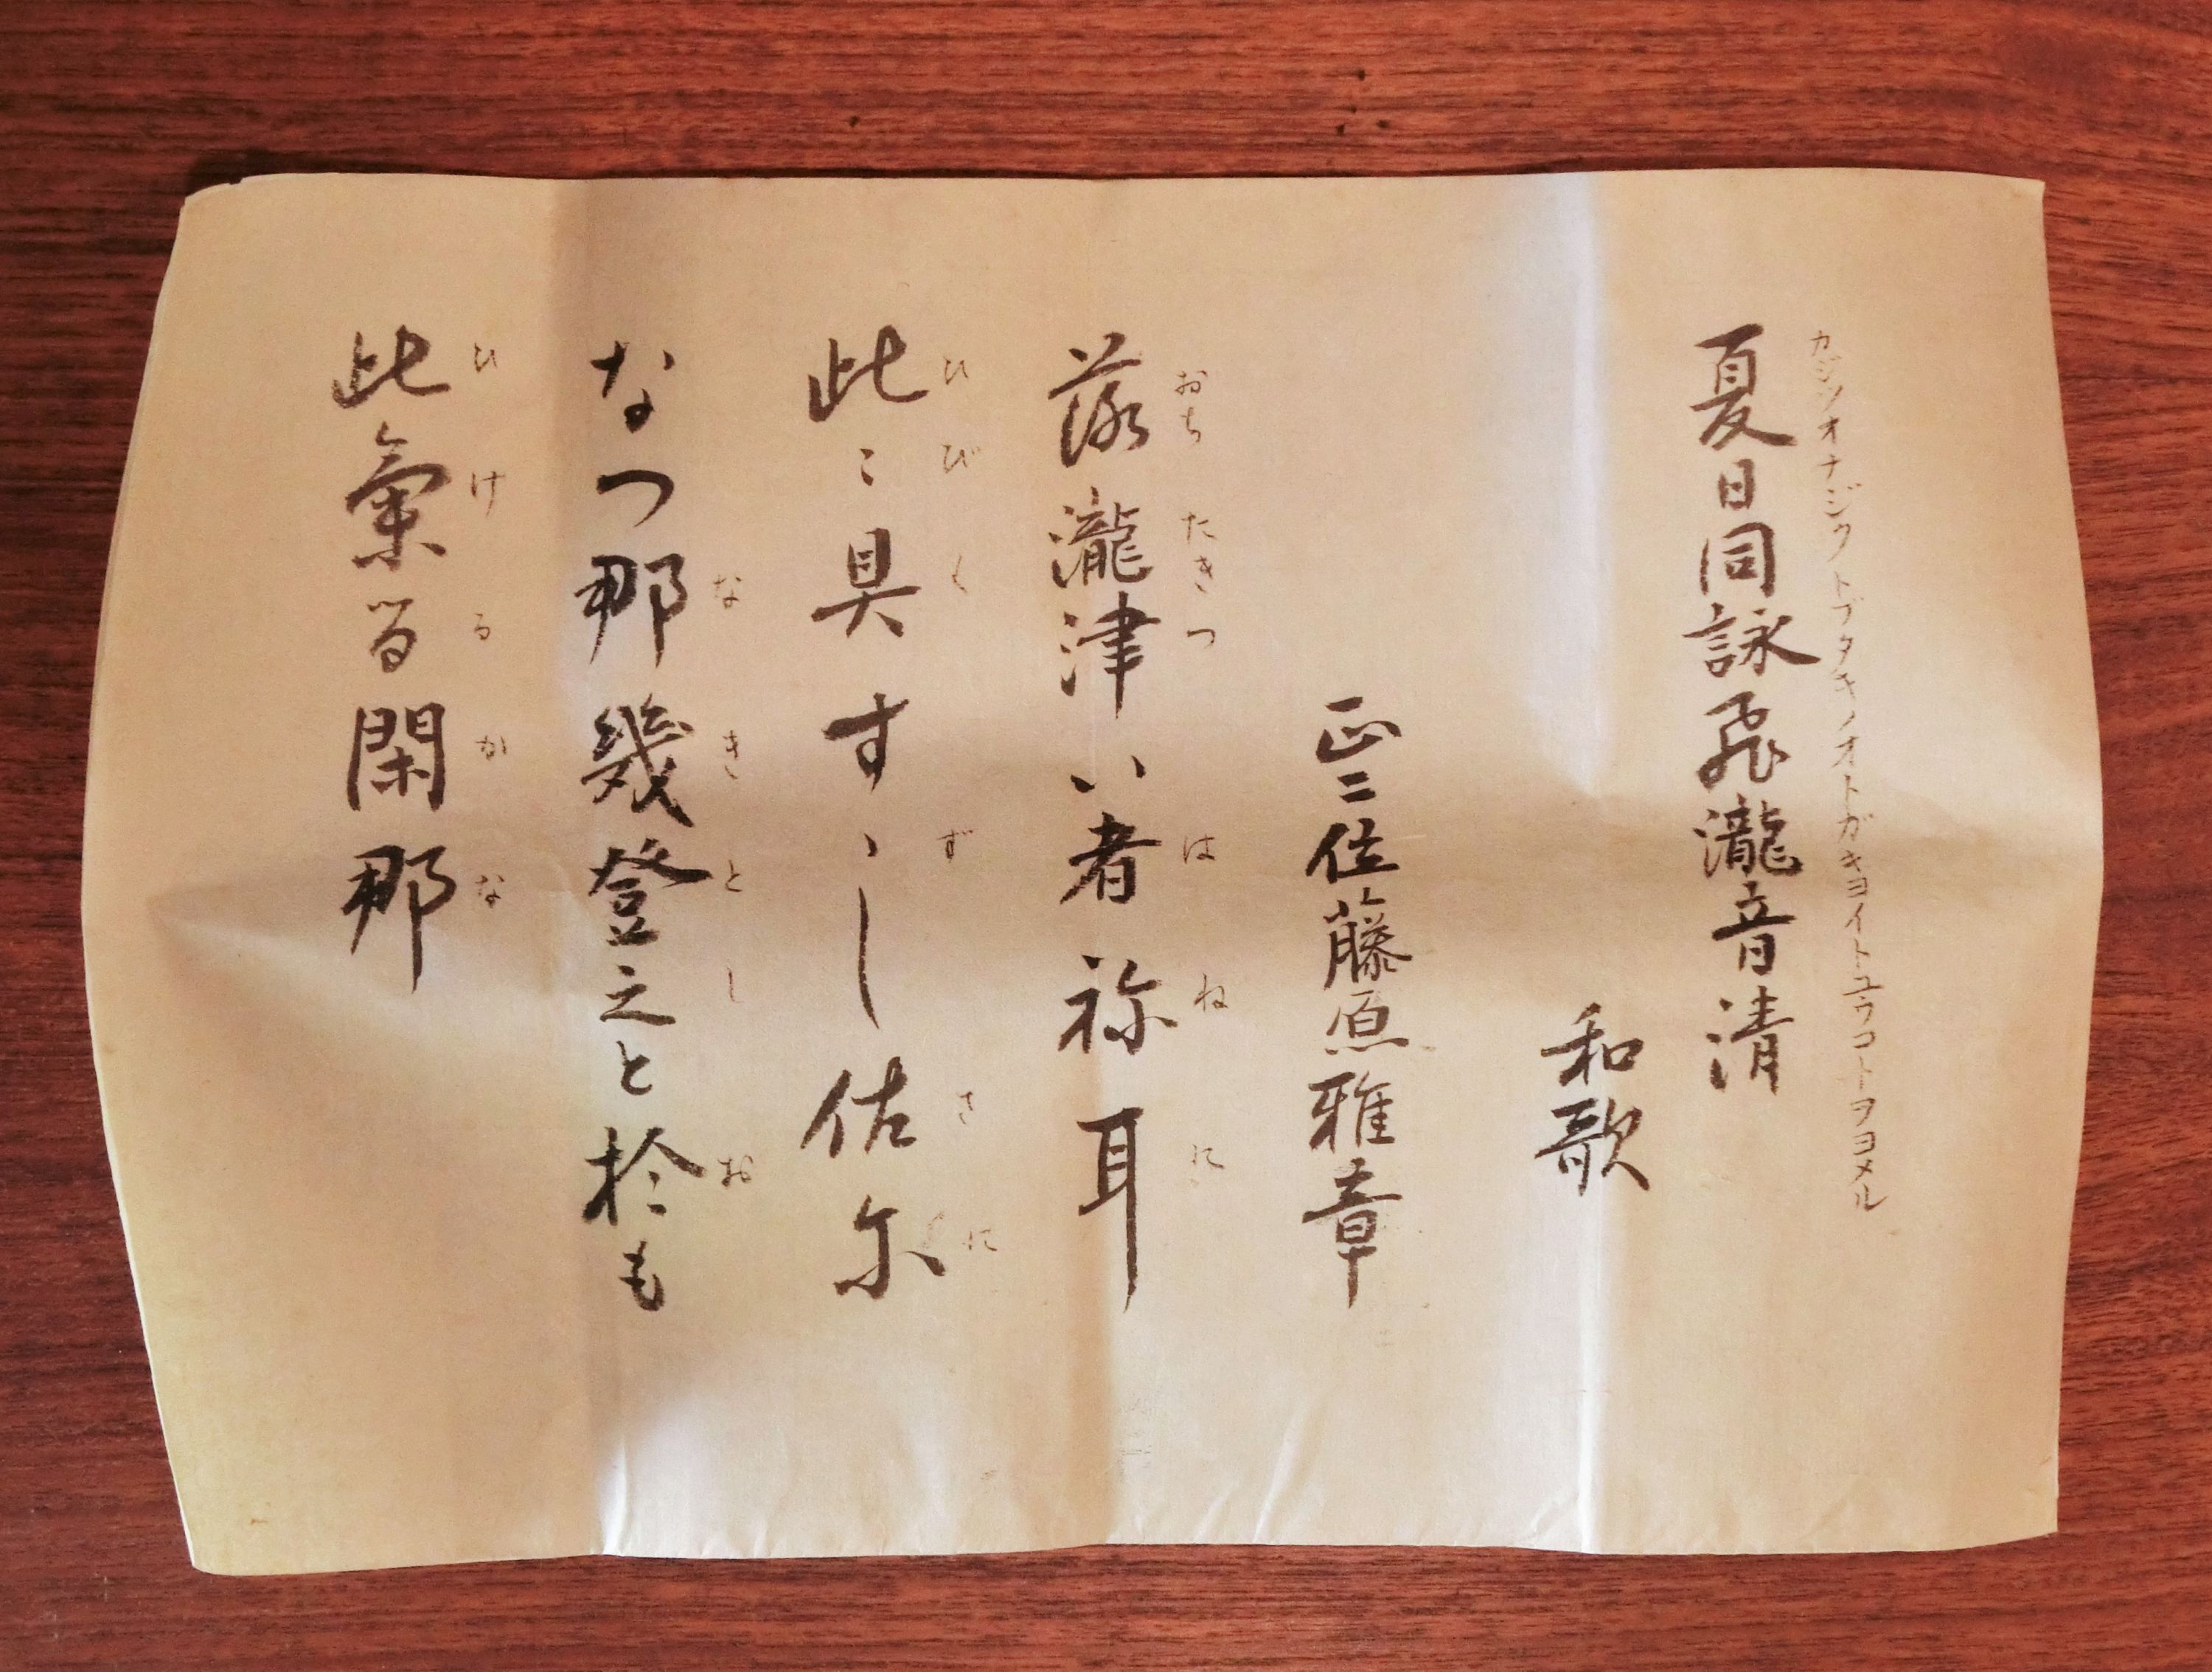 カジツオナジウトブタキノオトガキヨイトユウコトヲヨメル
夏日同詠飛瀧音清
和歌
正二位藤原雅章
おち たきつ は ね に
落瀧津い者祢耳
ひ び く ず さ に
此〻具すゝし佐尓
な き と し お
なつ那幾登之と於も
ひ け る か な
此氣る閑那